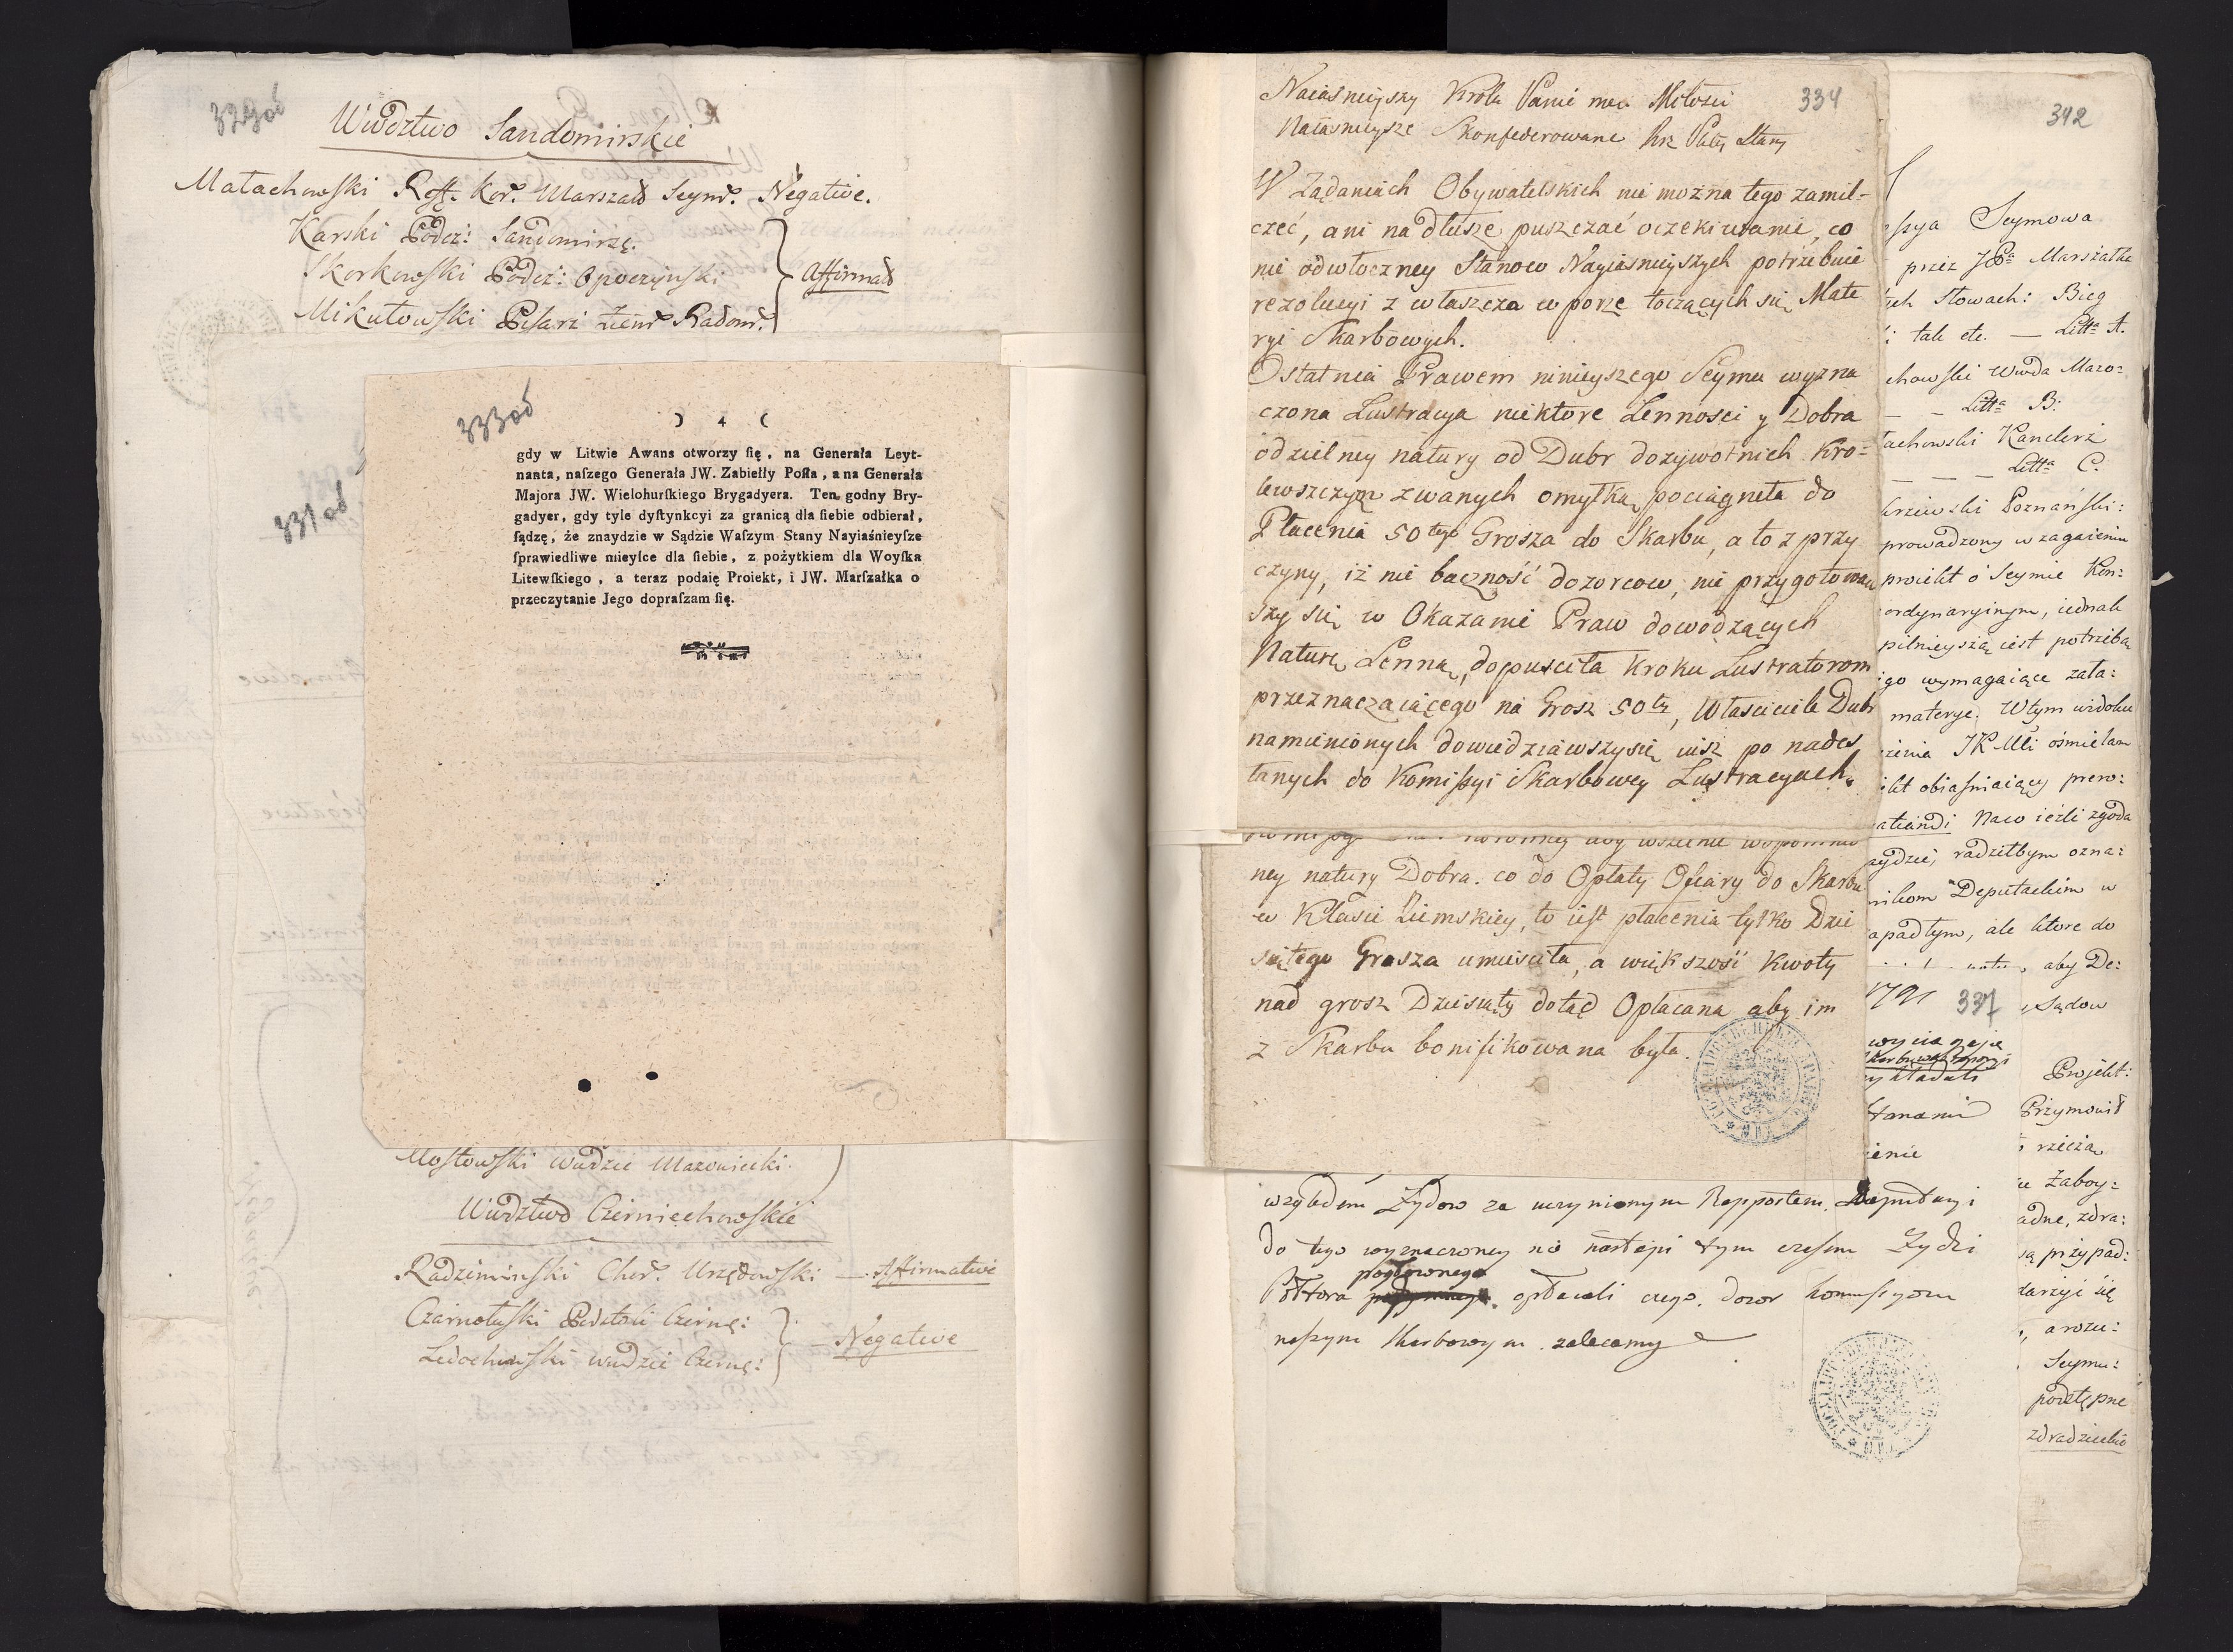 329od
Wwdztwo Sandomirskie
Małachowski Kor. Marszał Seym. Negative.
Karski Podcz: Sandomirzę.
Skorkowski Podcz: Opoczyński
Affirmad
Mikułowski Pisarz Ziem. Radom.
331od
333od
) 4 (
gdy w Litwie Awans otworzy ſię, na Generała Leyt-
nanta, naſzego Generała JW. Zabiełły Poſła, a na Generała
Majora JW. Wielohurſkiego Brygadyera. Ten godny Bry-
gadyer, gdy tyle dyſtynkcyi za granicą dla ſiebie odbierał,
ſądzę, że znaydzie w Sądzie Waſzym Stany Nayiaśnieyſze
ſprawiedliwe mieyſce dla ſiebie, z pożytkiem dla Woyſka
Litewſkiego, a teraz podaię Proiekt, i JW. Marſzałka o
przeczytanie Jego dopraſzam ſię.
Mostowski Wwdzic Mazowiecki.
Wwdztwo Czerniechowskie
Radzimiński Chor. Urzędowski — Affirmative
Czarnołuski Podstoli Czernię:
Negative
Ledochowski Wwdzic Czernię:
334
Naiasnieyszy Krolu Panie moa Miłosci
Naiasnieysze Skonfederowane Stany
W Żądaniach Obywatelskich nie można tego zamil-
czeć, ani na dłusze puszczać oczekiwanie, co
nie odwłoczney Stanow Nayiasnieyszych potrzebuie
rezolucyi z właszcza w porze toczących się Mate
ryi Skarbowych.
Ostatnia Prawem ninieyszego Seymu wyzna
czona Lustracya niektore Lennosci y Dobra
odzielney natury od Dubr dozywotnich Kro=
lewszczyzn zwanych omyłką pociągneła do
Płacenia 50tego Grosza do Skarbu, a to z przy
czyny, iż nie baczność dozorcow, nie przygotowaw
szy się w Okazanie Praw dowodzących
Naturę Lenną, dopusciła kroku Lustratorom
przeznaczaiącego na Grosz 50ty, Własciciele Dubr
namienionych dowiedziawszy się iusz po nades
łanych do Komissyi Skarbowey Lustracyach.
ney natury Dobra. co do Opłaty Ofiary do Skarbu
w Klasie Ziemskiey, to iest płacenia tylko Dzie
siątego Grosza umiesciła, a większość Kwoty
nad grosz Dziesiąty dotąd Opłacana aby im
z Skarbu bonifikowana była.
względem Żydow za uczynionym Rapportem Deputacyi
do tego wyznaczoney nie nastąpi tym czasem Żydzi
pogłownego
Półtora opłacali czego dozor kommissyom
naszym Skarbowym zalecamy
342
Seymowa
przez JPa Marszałka
Słowach: Bieg
tak etc. — Litta A.
Wwda Mazo=
— Litta B:
Kanclerz
— Litta C.
Poznański:
prowadzony w zagaieniu
proiekt o Seymie Kon:
ordynaryinym, iednak
pilnieyszą iest potrzebą
go wymagaiące zała:
materye. W tym widoku
JKMci ośmielam
obiaśniaiący prero:
Naco ieżli zgoda
radziłbym ozna:
Deputackim w
apadłym, ale ktore do
aby De:
1791
337
Sądow
Projekt:
Przymowił
rzeżią
Zaboy:
zdra:
są przypad:
darzyć się
a rozu:
Seymu:
podstępne
zdradzieckie